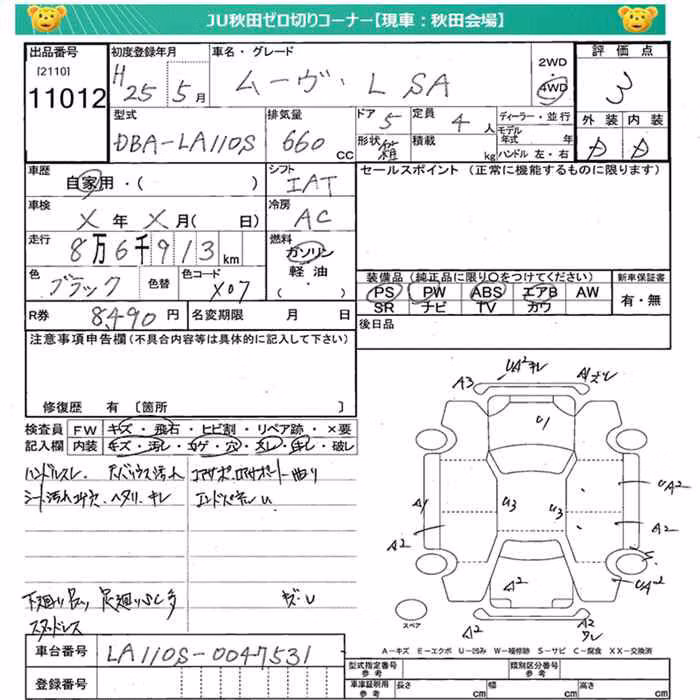 JU秋田ゼロ切りコーナー【現車：秋田会場】
出品番号 初度登録年月 車名・グレード 2WD 評価点
[2110] H25 5月 ムーヴ・L SA 4WD 3
11012
型式 排気量 ドア 定員 ディーラー・並行 外装 内装
DBA-LA110S 660CC 5 4人 モデル年式 年 D D
形状 箱 積載 kg ハンドル 左・右
車歴 シフト セールスポイント（正常に機能するものに限ります）
自家用・（ ） IAT
車検 冷房
X年X月（ 日） AC
走行 燃料
8万6千913km ガソリン
軽油・
（ ）
色 色替 色コード 装備品（純正品に限り○をつけてください） 新車保証書
ブラック X07 PS PW ABS エアB AW 有・無
SR ナビ TV カワ
R券 8,490円 名変期限 月 日 後日品
注意事項申告欄（不具合内容等は具体的に記入して下さい）
修復歴 有〔箇所 〕
検査員 FW キズ・飛石・ヒビ割・リペア跡・×要
記入欄 内装 キズ・汚し・コゲ・穴・スレ・キレ・破レ
ハンドルスレ
シート汚れコゲ穴・ヘタリ・キレ
A3 UA2キレ A1ズレ
U1
A1 U3 U3 UA2
A2 A2
A2 UA2
A2 A2
スペア
下廻り 足廻り
スタッドレス
A－キズ E－エクボ U－凹み W－補修跡 S－サビ C－腐食 XX－交換済
車台番号 LA110S-0047531
型式指定番号 参考 類別区分番号 参考
登録番号
車庫証明用 参考 長さ cm 幅 cm 高さ cm